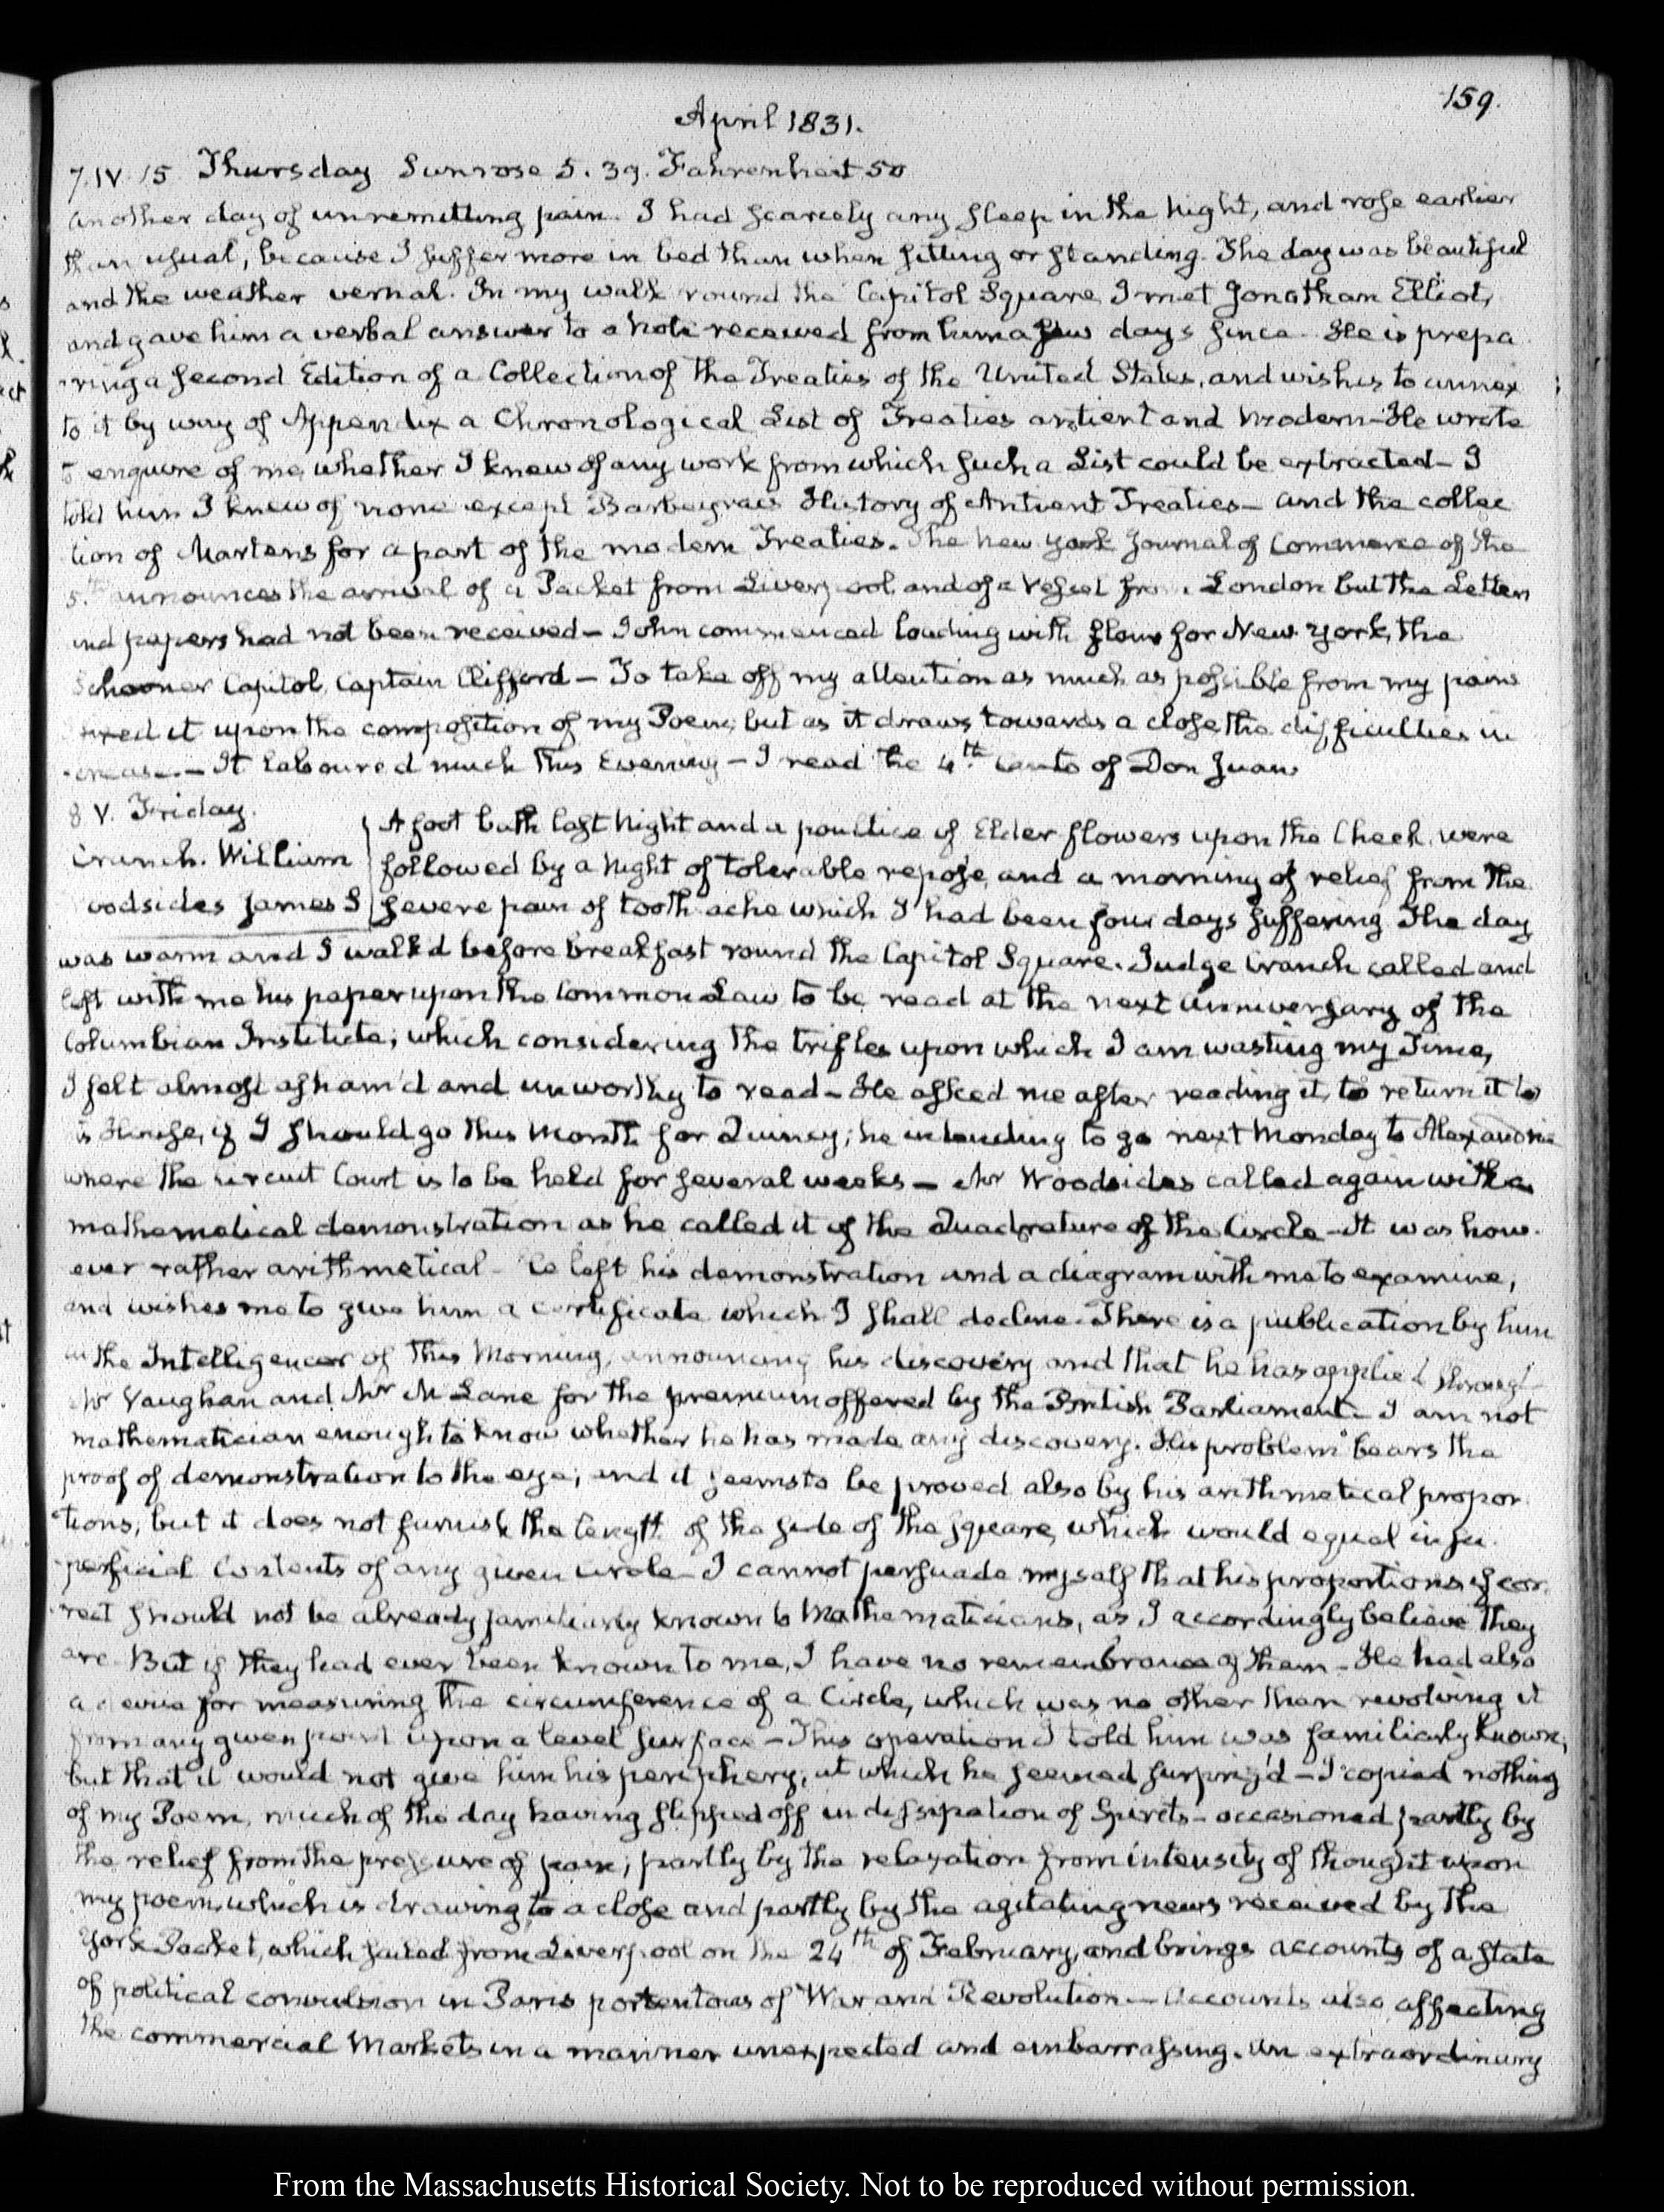 159.
April 1831.
7. IV. 15. Thursday Sunrose 5. 39. Fahrenheit 50
Another day of unremitting pain. I had scarcely any sleep in the Night, and rose earlier
than usual, because I suffer more in bed than when sitting or standing. The day was beautiful
and the weather vernal. In my walk round the Capitol Square I met Jonathan Elliot,
and gave him a verbal answer to a Note received from him a few days since. He is prepa
ring a second Edition of a Collection of the Treaties of the United States, and wishes to annex
to it by way of Appendix a Chronological List of Treaties antient and Modern. He wrote
to enquire of me, whether I knew of any work from which such a List could be extracted— I
told him I knew of none except Barbeyrac's History of Antient Treaties— and the collec
tion of Martens for a part of the modern Treaties. The New York Journal of Commerce of the
5.th announces the arrival of a Packet from Liverpool, and of a vessel from London but the Letters
and papers had not been received— John commenced loading with flour for New York, the
Schooner Capitol, Captain Clifford— To take off my attention as much as possible from my pain
it upon the composition of my Poem; but as it draws towards a close the difficulties in
crease.— It laboured much this Evening— I read the 4.th Canto of Don Juan.
8 V. Friday.
Cranch. William
Woodsides James S
A foot bath last Night and a poultice of Elder flowers upon the Cheek, were
followed by a Night of tolerable repose, and a morning of relief from the
severe pain of tooth ache which I had been four days suffering. The day
was warm and I walk'd before breakfast round the Capitol Square. Judge Cranch called and
left with me his paper upon the Common Law to be read at the next anniversary of the
Columbian Institute; which considering the trifles upon which I am wasting my Time,
I felt almost asham'd and unworthy to read— He asked me after reading it, to return it to
his House, if I should go this Month for Quincy; he intending to go next Monday to Alexandria
where the Circuit Court is to be held for several weeks— Mr Woodsides called again with a
mathematical demonstration as he called it of the Quadrature of the Circle— It was how-
ever rather arithmetical— He left his demonstration and a diagram with me to examine,
and wishes me to give him a certificate which I shall decline. There is a publication by him
in the Intelligencer of this Morning, announcing his discovery and that he has applied through
Mr Vaughan and Mr McLane for the premium offered by the British Parliament— I am not
mathematician enough to know whether he has made any discovery. His problem bears the
proof of demonstration to the eye; and it seems to be proved also by his arithmetical propor
tions, but it does not furnish the length of the side of the square, which would equal in su-
perficial Contents of any given circle— I cannot persuade myself that his proportions if cor-
rect should not be already familiarly known to Mathematicians, as I accordingly believe they
are. But if they had ever been known to me, I have no remembrance of them— He had also
a device for measuring the circumference of a Circle, which was no other than revolving it
from any given point upon a level surface— This operation I told him was familiarly known;
but that it would not give him his periphery; at which he seemed surpriz'd— I copied nothing
of my Poem, much of the day having slipped off in dissipation of Spirits— occasioned partly by
the relief from the pressure of pain; partly by the relaxation from intensity of thought upon
my poem, which is drawing to a close and partly by the agitating news received by the
York Packet, which sailed from Liverpool on the 24th of February, and brings accounts of a state
of political convulsion in Paris portentous of War and Revolution— Accounts also affecting
the commercial Markets in a manner unexpected and embarrassing. An extraordinary
From the Massachusetts Historical Society. Not to be reproduced without permission.